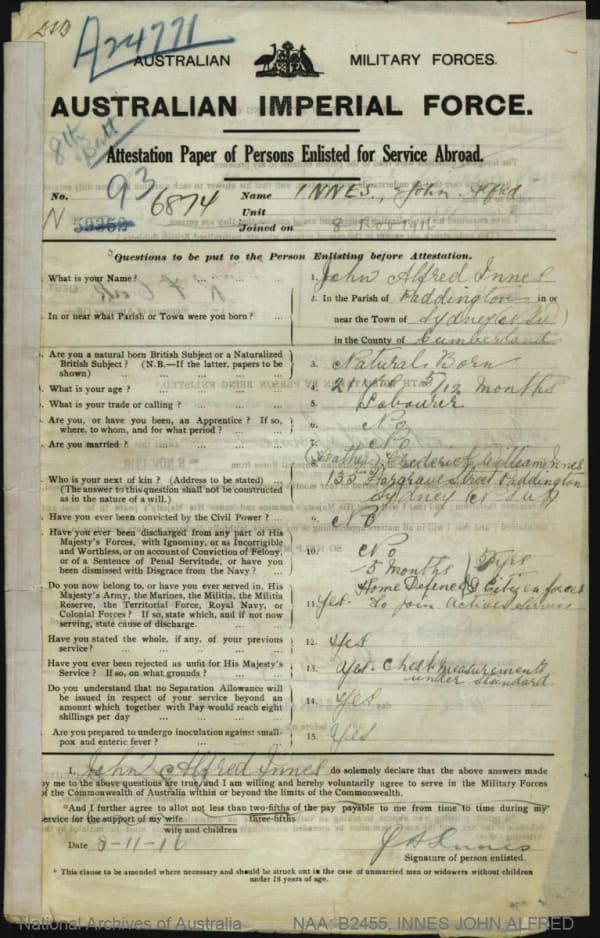 A24771
AUSTRALIAN MILITARY FORCES.
AUSTRALIAN IMPERIAL FORCE.
8th Batt
Attestation Paper of Persons Enlisted for Service Abroad.
93
No. 6874 Name INNES, John Alfred
N Unit
Joined on 8 Nov 1916
Questions to be put to the Person Enlisting before Attestation.
What is your Name? ... 1. John Alfred Innes
In or near what Parish or Town were you born? ... 2. In the Parish of Paddington in or
near the Town of Sydney
in the County of Cumberland
Are you a natural born British Subject or a Naturalized
British Subject? (N.B.—If the latter, papers to be
shown) 3. Natural Born
What is your age? ... 4. 21 5/12 months
What is your trade or calling? ... 5. Labourer
Are you, or have you been, an Apprentice? If so,
where, to whom, and for what period? ... 6. No
Are you married? ... 7. No
Who is your next of kin? (Address to be stated) ...
(The answer to this question shall not be construed
as in the nature of a will.) ...
(Father) Frederick William Innes
135 Hargrave Street Paddington
Sydney
Have you ever been convicted by the Civil Power? ... 9. No
Have you ever been discharged from any part of His
Majesty's Forces, with Ignominy, or as Incorrigible
and Worthless, or on account of Conviction of Felony,
or of a Sentence of Penal Servitude, or have you
been dismissed with Disgrace from the Navy? ... 10. No
Do you now belong to, or have you ever served in, His
Majesty's Army, the Marines, the Militia, the Militia
Reserve, the Territorial Force, Royal Navy, or
Colonial Forces? If so, state which, and if not now
serving, state cause of discharge.
5 months Home Defence
Citizen forces
11. Yes. To join Active Service
Have you stated the whole, if any, of your previous
service? ... 12. Yes
Have you ever been rejected as unfit for His Majesty's
Service? If so, on what grounds? ... 13. Yes. Chest measurements
under standard
Do you understand that no Separation Allowance will
be issued in respect of your service beyond an
amount which together with Pay would reach eight
shillings per day ... 14. Yes
Are you prepared to undergo inoculation against small-
pox and enteric fever? ... 15. Yes
I, John Alfred Innes do solemnly declare that the above answers made
by me to the above questions are true, and I am willing and hereby voluntarily agree to serve in the Military Forces
of the Commonwealth of Australia within or beyond the limits of the Commonwealth.
*And I further agree to allot not less than two-fifths of the pay payable to me from time to time during my
service for the support of my wife three-fifths
wife and children
Date 8-11-16 J A Innes
Signature of person enlisted.
* This clause to be amended where necessary and should be struck out in the case of unmarried men or widowers without children
under 18 years of age.
National Archives of Australia NAA: B2455, INNES JOHN ALFRED